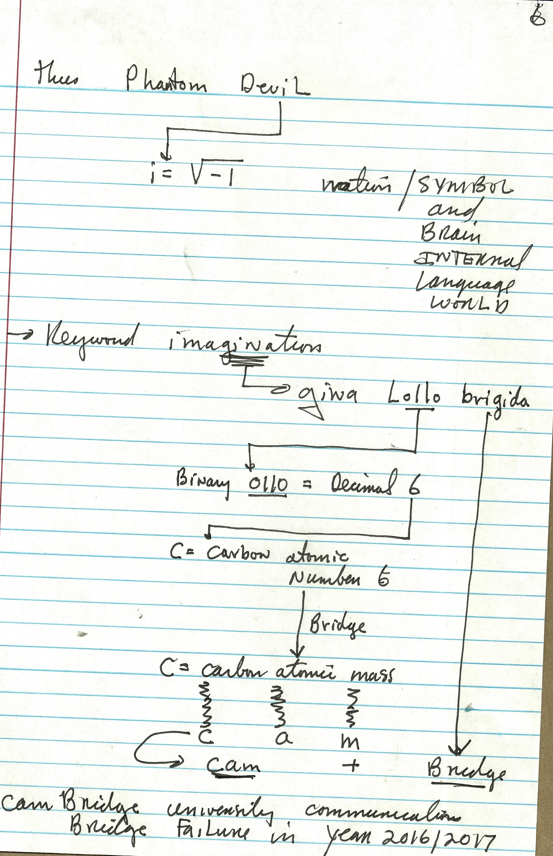 6
thus Phantom Devil
i = √-1
nation / SYMBOL
and
Brain
INTERNAL
Language
WORLD
→ Keyword imagination
gina Lollo brigida
Binary 0110 = Decimal 6
C = Carbon atomic
Number 6
Bridge
C = carbon atomic mass
C a m
Cam + Bridge
Cam Bridge university communication
Bridge Failure in year 2016/2017